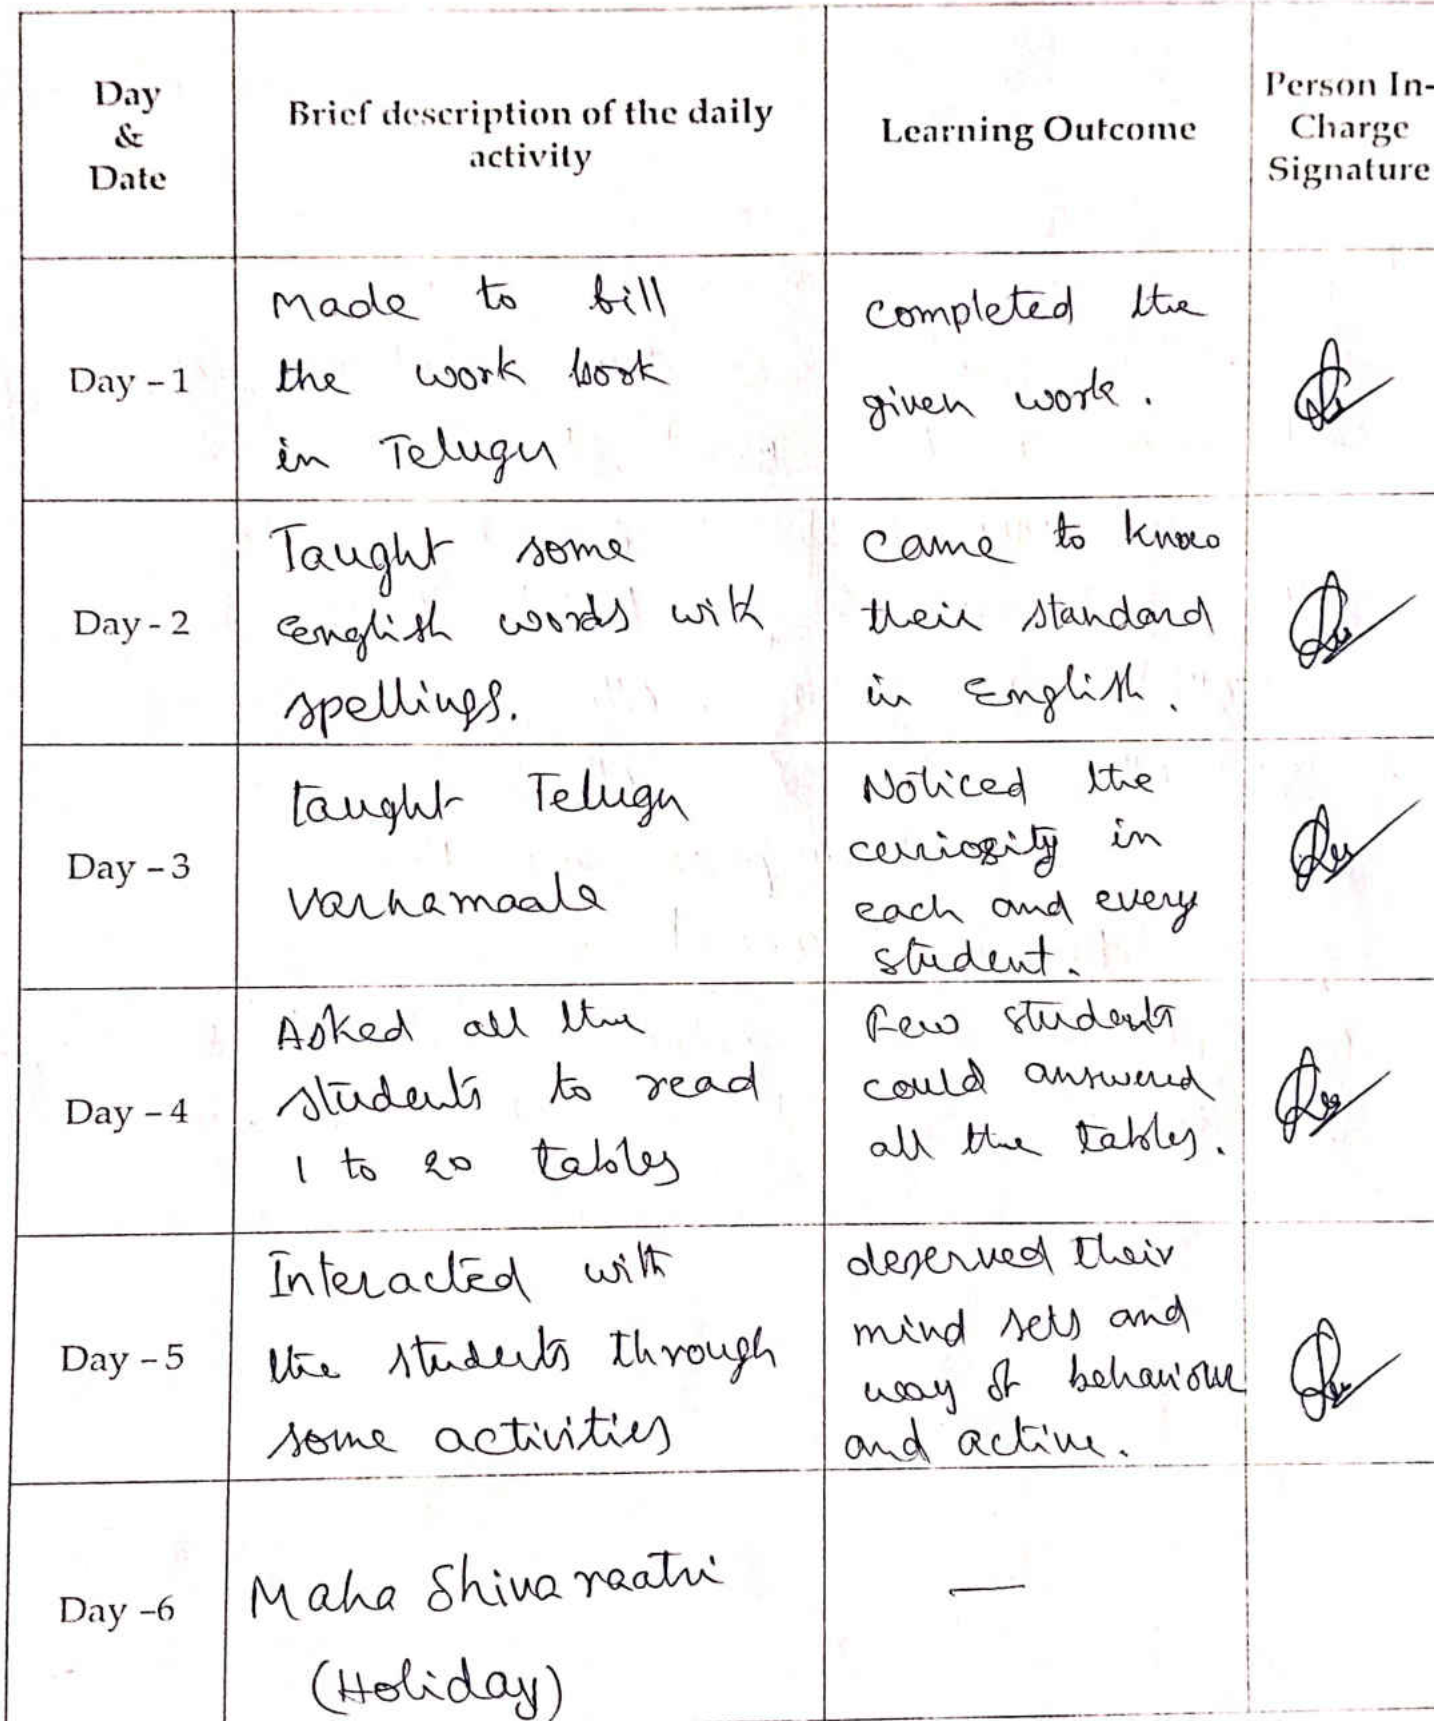 Day
&
Date
Brief description of the daily
activity
Learning Outcome
Person In-
Charge
Signature
Day - 1
Made to fill
the work book
in Telugu
completed the
given work.
Day - 2
Taught some
english words with
spellings.
came to know
their standard
in English.
Day - 3
taught Telugu
varnamaala
Noticed the
curiosity in
each and every
student.
Day - 4
Asked all the
students to read
1 to 20 tables
Few students
could answered
all the tables.
Day - 5
Interacted with
the students through
some activities
deserved their
mind sets and
way of behaviour
and active.
Day -6
Maha Shivaraatri
(Holiday)
—